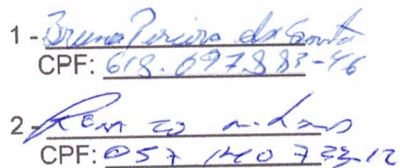 1 - Bruna Pereira da Costa
CPF: 618.697.883-46
2 - Renzo
CPF: 057 140 733-12